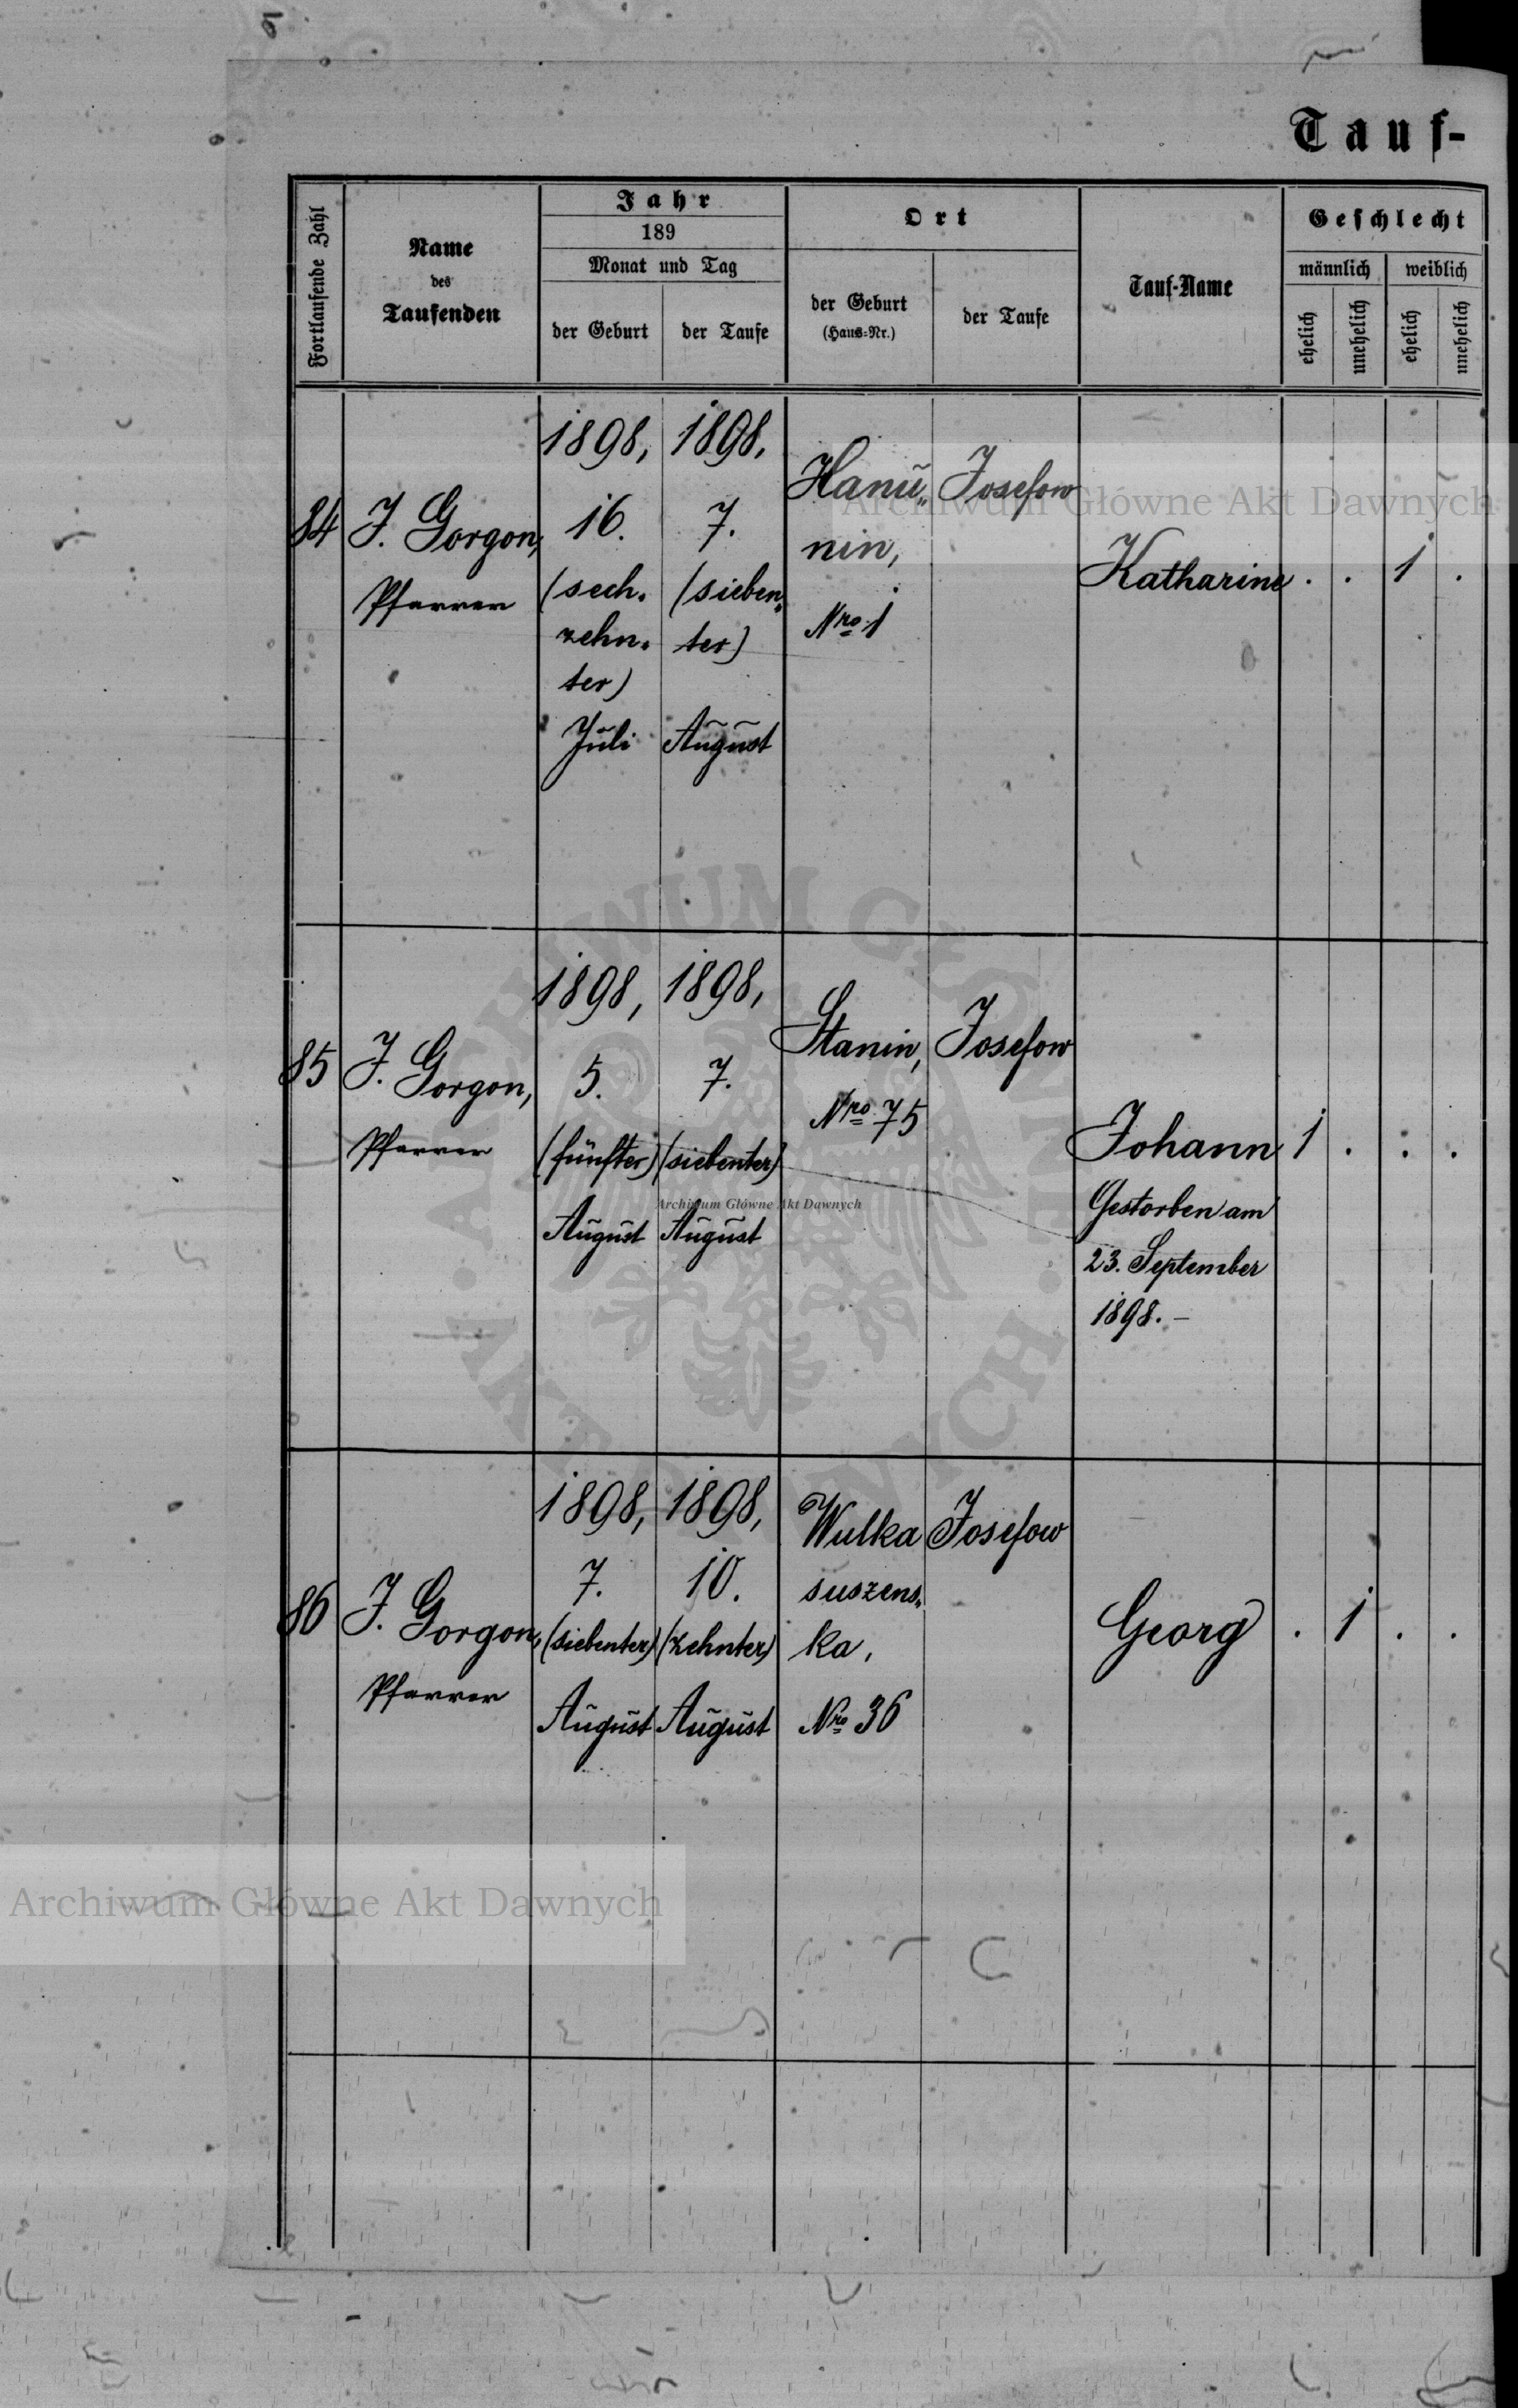 Tauf-
Fortlaufende Zahl
Name
des
Taufenden
Jahr
189
Monat und Tag
der Geburt
der Taufe
Ort
der Geburt
(Haus-Nr.)
der Taufe
Tauf-Name
Geschlecht
männlich
weiblich
ehelich
unehelich
ehelich
unehelich
84
J. Gorgon,
Pfarrer
1898,
16.
(sech-
zehn-
ter)
Juli
1898,
7.
(sieben-
ter)
August
Hanu-
nin,
Nro 1
Josefow
Katharine
. . 1 .
85
J. Gorgon,
Pfarrer
1898,
5.
(fünfter)
August
1898,
7.
(siebenter)
August
Stanin,
Nro 75
Josefow
Johann
Gestorben am
23. September
1898. –
1 . . .
86
J. Gorgon,
Pfarrer
1898,
7.
(siebenter)
August
1898,
10.
(zehnter)
August
Wulka
suszens-
ka,
Nro 36
Josefow
Georg
. 1 . .
Archiwum Główne Akt Dawnych
Archiwum Główne Akt Dawnych
Archiwum Główne Akt Dawnych
ARCHIWUM GŁÓWNE AKT DAWNYCH